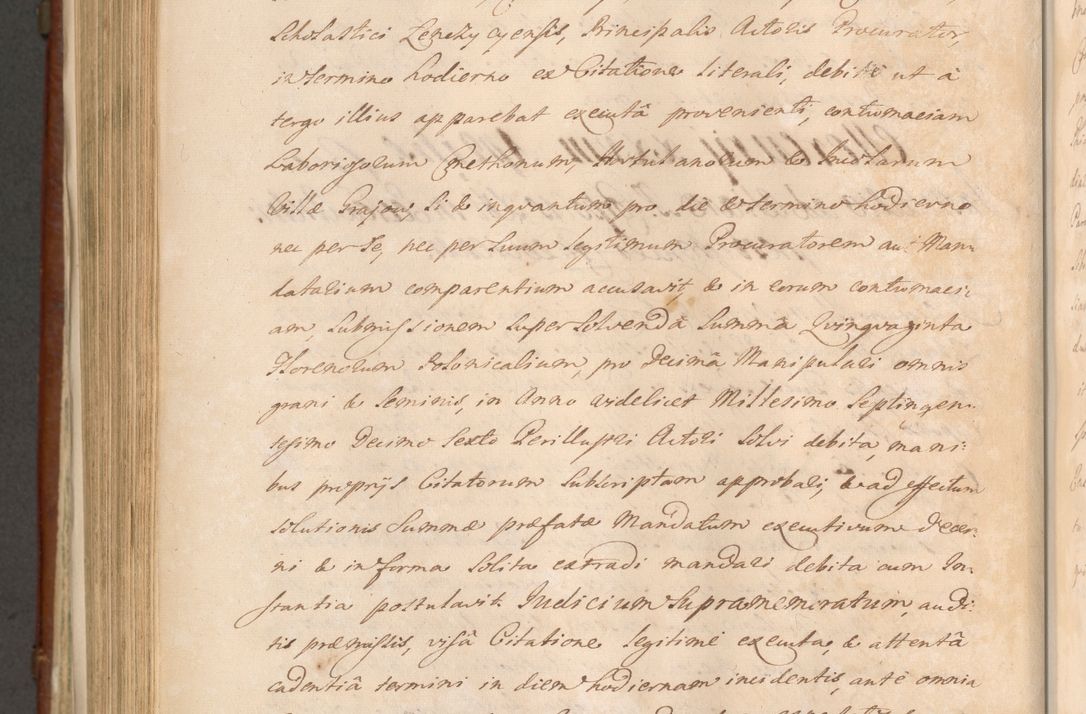 Scholastici Lenczycyensis, Principalis Actoris Procurator,
in termino hodierno ex Citatione literali, debite ut à
tergo illius apparebat executâ provenienti, contumaciam
Laboriosorum Cmethonum, Hortulanorum & Inquilanorum
Villæ Grajow si & inquantum pro die & termino hodierno
nec per se, nec per suum legitimum Procuratorem aut Man-
datarium comparentium accusavit, & in eorum contumaci:
am, submissionem super solvendâ Summâ Qvinqvaginta
Florenorum Polonicalium, pro Decimâ Manipulari omnis
grani & seminis, in Anno videlicet Millesimo Septingen-
tesimo Decimo Sexto Perillustri Actori solvi debita, mani:
bus proprijs Citatorum subscriptam approbari, & ad effectum
solutionis Summæ præfatæ Mandatum executivum decer:
ni & in forma solita extradi mandari debita cum In-
stantia postulavit. Judicium Supramemoratum, audi-
tis præmissis, visâ Citatione legitimè executa, & attentâ
cadentiâ termini in diem hodiernam incidentis, antè omnia